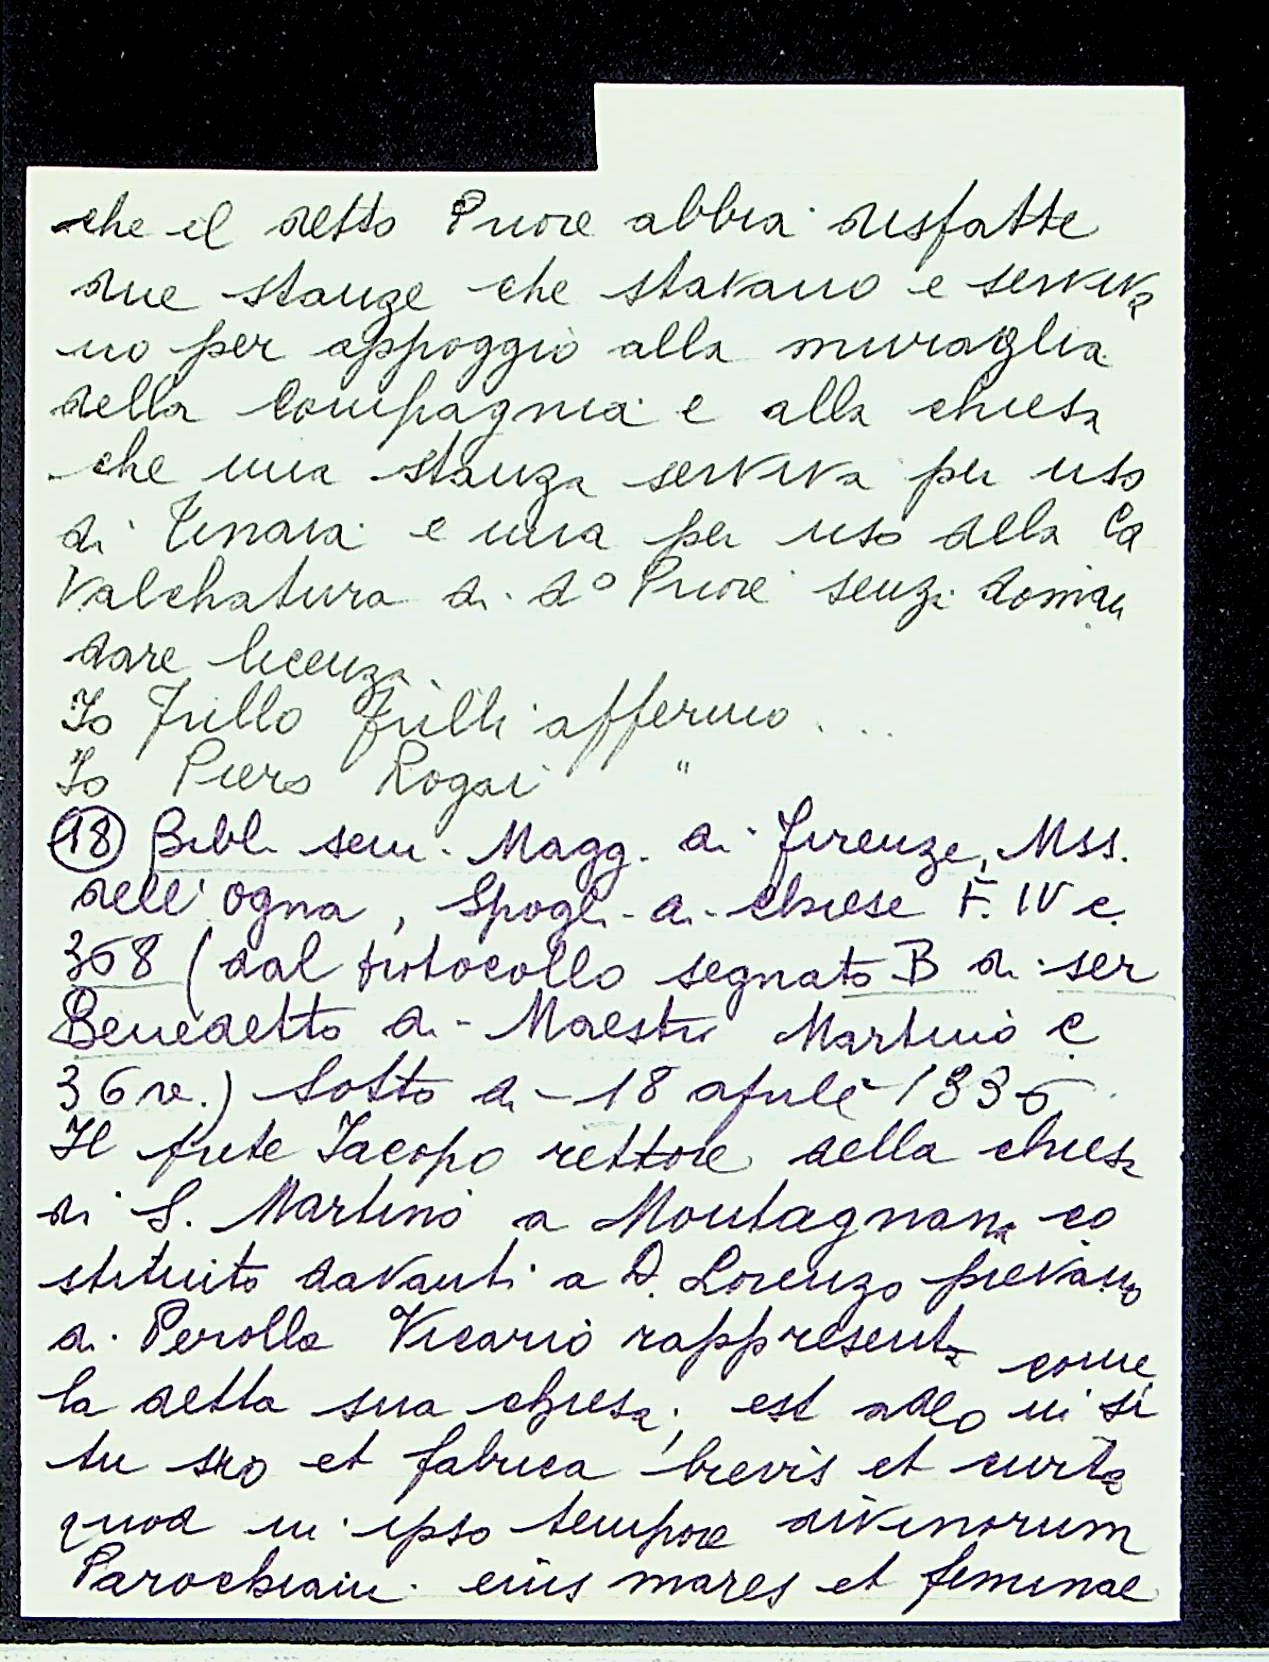 che il detto Priore abbia disfatte
due stanze che stavano e serviva
no per appoggio alla muraglia
della Compagnia e alla chiesa
che una stanza serviva per uso
di Tinaia e una per uso della Ca
valchatura di d° Priore senza doman
dare licenza.
Io Frillo Frilli affermo ...
Io Piero Rogai "
(18) Bibl. sem. Magg. di Firenze, Mss.
dell'ogna, Spogli di chiese F. IV c.
368 (dal protocollo segnato B di ser
Benedetto di Maestro Martino c
36 v.) Sotto di 18 aprile 1336
Il prete Jacopo rettore della chiesa
di S. Martino a Montagnana co
stituito davanti a D. Lorenzo pievano
di Perolla Vicario rappresenta come
la detta sua chiesa; est adeo in si
tu suo et fabrica brevis et curta
quod in ipso tempore divinorum
Parochiani eius mares et feminae